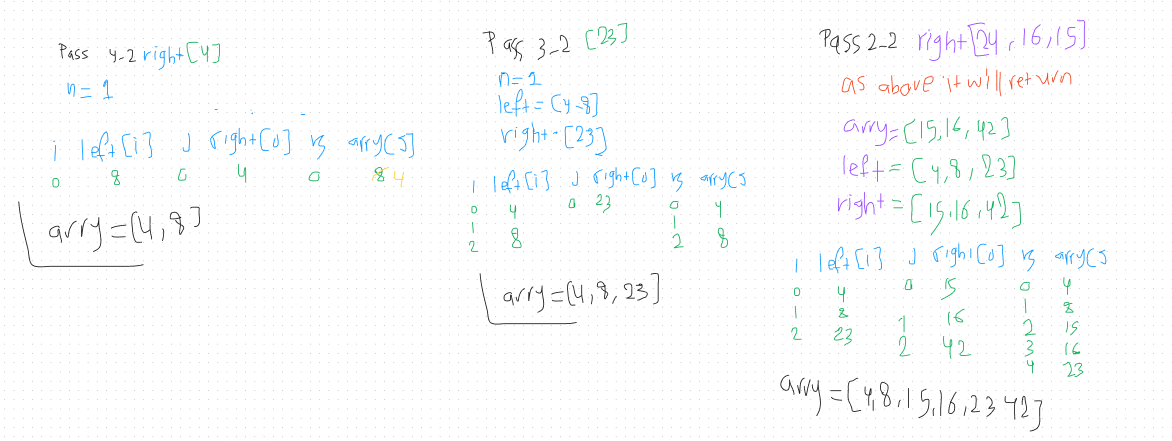 Pass 4-2 right[4]
n= 1
i left[i] J right[0] k arry[J]
0 8 0 4 0 8 4
arry=[4,8]
Pass 3-2 [23]
n=1
left=[4-8]
right-[23]
i left[i] J right[0] k arry[J
0 4 0 23 0 4
1 1
2 8 2 8
arry=[4,8,23]
Pass 2-2 right[24,16,15]
as above it will return
arry=[15,16,42]
left=[4,8,23]
right=[15,16,42]
i left[i] J right[0] k arry[J
0 4 0 15 0 4
1 8 1 16 1 8
2 23 2 42 2 15
3 16
4 23
arry=[4,8,15,16,23 42]